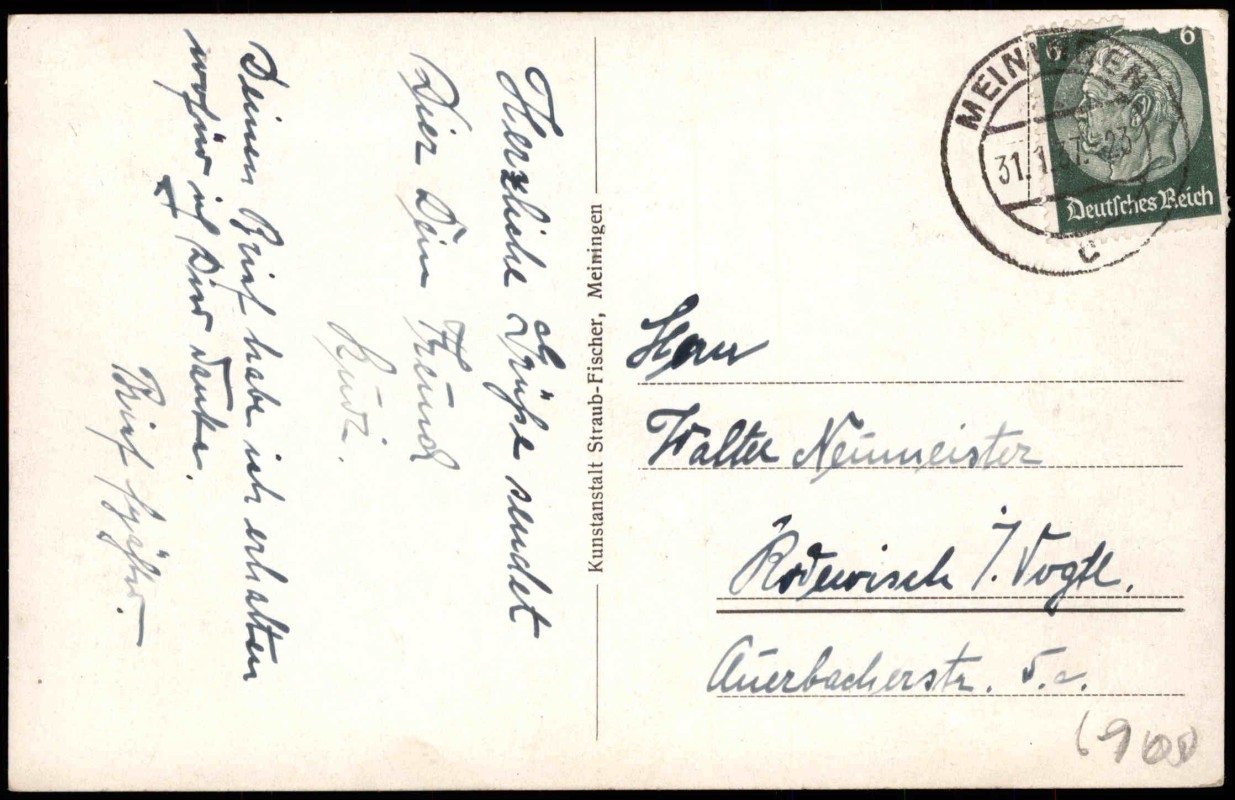 Herzliche Grüße sendet
Dier Dein Freund
Rudi.
Deinen Brief habe ich erhalten
wofür ich Dier danke.
Brief später.
Kunstanstalt Straub-Fischer, Meiningen
MEININGEN
31.1.37.-23
c
6 6
Deutsches Reich
Herrn
Walter Neumeister
Rodewisch i/. Vogtl.
Auerbacherstr. 5.a.